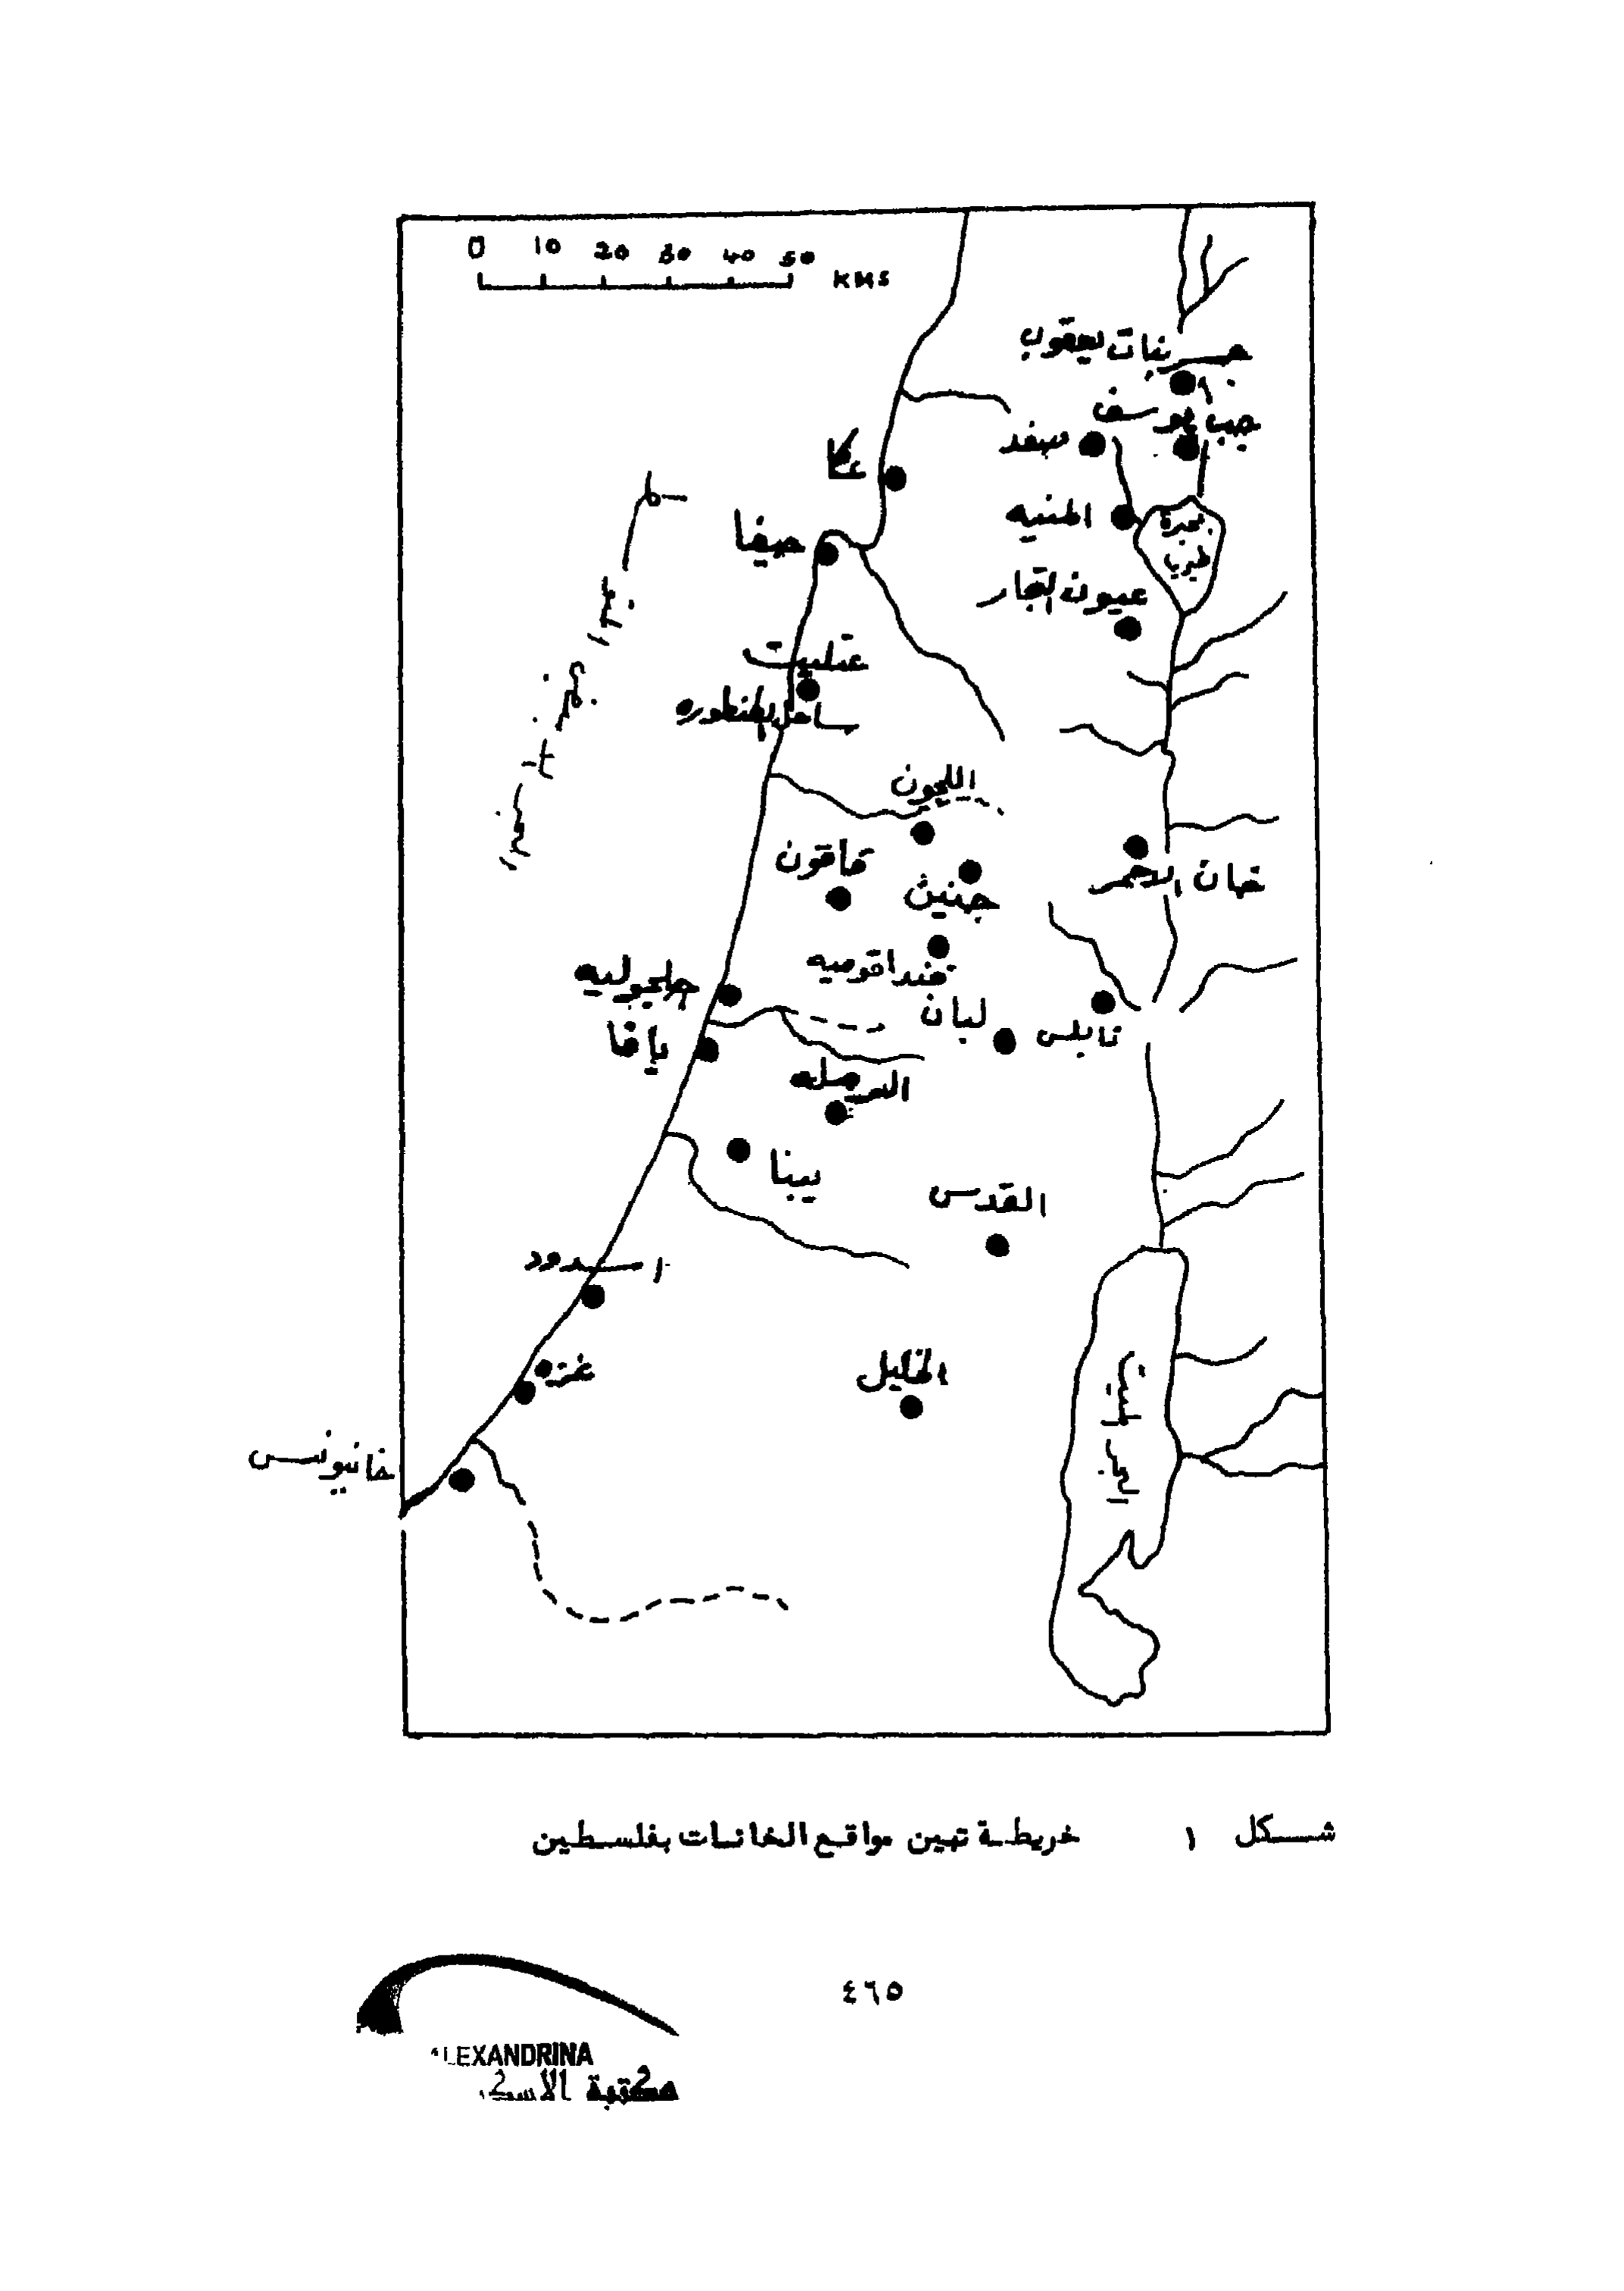 0 10 20 30 40 50 KMS
جسر بنات يعقوب
جب يوسف
صفد
عكا
المنيه
بحيرة
طبريا
حيفا
عيون التجار
عتليت
ساحل الطنطوره
اللجون
قاقون
جنين
خان الاحمر
جلجوليه
لبان
نابلس
يافا
الرمله
يبنا
القدس
اسدود
غزه
الخليل
البحر الميت
خانيونس
شكل ١ خريطة تبين مواقع الخانات بفلسطين
٤٦٥
LEXANDRINA
مكتبة الاسك